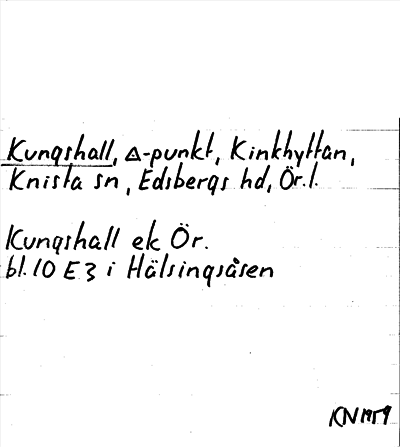 Kungshall, △-punkt, Kinkhyttan,
Knista sn, Edsbergs hd, Ör. l.
Kungshall ek Ör.
bl. 10 E 3 i Hälsingsåsen
KN 1959